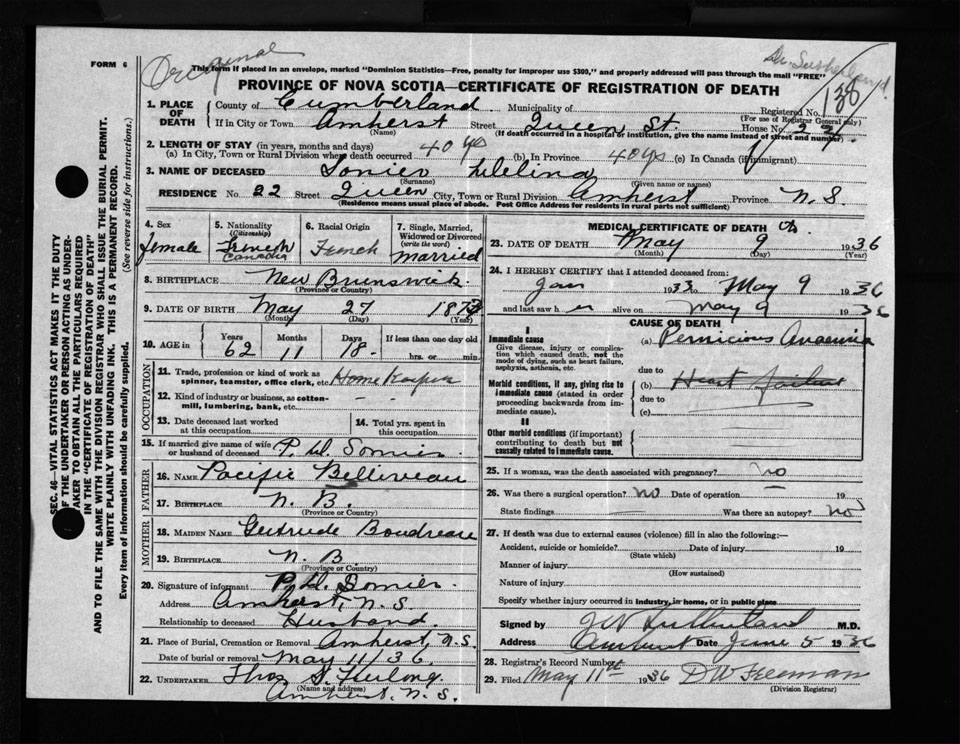 Original
Dr. Sutherland
FORM 6
This form if placed in an envelope, marked "Dominion Statistics—Free, penalty for improper use $300," and properly addressed will pass through the mail "FREE"
PROVINCE OF NOVA SCOTIA—CERTIFICATE OF REGISTRATION OF DEATH
138
1. PLACE OF DEATH
County of Cumberland Municipality of Registered No.
(For use of Registrar General only)
If in City or Town Amherst Street Queen St. House No. 22
(Name) (If death occurred in a hospital or institution, give the name instead of street and number)
2. LENGTH OF STAY (in years, months and days)
(a) In City, Town or Rural Division where death occurred 40 yrs (b) In Province 40 yrs (c) In Canada (if immigrant)
3. NAME OF DECEASED Somier
(Surname) (Given name or names)
RESIDENCE No. 22 Street Queen City, Town or Rural Division Amherst Province N.S.
(Residence means usual place of abode. Post Office Address for residents in rural parts not sufficient)
4. Sex Female
5. Nationality (Citizenship) French Canadia
6. Racial Origin French
7. Single, Married, Widowed or Divorced (write the word) married
8. BIRTHPLACE New Brunswick
(Province or Country)
9. DATE OF BIRTH May 27
(Month) (Day) (Year)
10. AGE in Years 62 Months 11 Days 18 If less than one day old
hrs. or min.
OCCUPATION
11. Trade, profession or kind of work as spinner, teamster, office clerk, etc. Home Keeper
12. Kind of industry or business, as cotton-mill, lumbering, bank, etc. - -
13. Date deceased last worked at this occupation
14. Total yrs. spent in this occupation
15. If married give name of wife or husband of deceased Somier
FATHER
16. NAME Pacific Belliveau
17. BIRTHPLACE N.B.
(Province or Country)
MOTHER
18. MAIDEN NAME Gertrude Boudreau
19. BIRTHPLACE N.B.
(Province or Country)
20. Signature of informant Somier
Address Amherst, N.S.
Relationship to deceased Husband
21. Place of Burial, Cremation or Removal Amherst, N.S.
Date of burial or removal May 11/36
22. UNDERTAKER Thos
(Name and address)
Amherst, N.S.
MEDICAL CERTIFICATE OF DEATH
23. DATE OF DEATH May 9 1936
(Month) (Day) (Year)
24. I HEREBY CERTIFY that I attended deceased from:
Jan 1933 to May 9 1936
and last saw her alive on May 9 1936
CAUSE OF DEATH
I
Immediate cause
Give disease, injury or complication which caused death, not the mode of dying, such as heart failure, asphyxia, asthenia, etc.
(a) Pernicious Anaemia
due to
Morbid conditions, if any, giving rise to immediate cause (stated in order proceeding backwards from immediate cause).
(b) Heart Failure
due to
(c)
II
Other morbid conditions (if important) contributing to death but not causally related to immediate cause.
25. If a woman, was the death associated with pregnancy? no
26. Was there a surgical operation? no Date of operation 19
State findings Was there an autopsy? no
27. If death was due to external causes (violence) fill in also the following:—
Accident, suicide or homicide? Date of injury 19
(State which)
Manner of injury
(How sustained)
Nature of injury
Specify whether injury occurred in industry, in home, or in public place
Signed by Sutherland M.D.
Address Amherst Date June 5 1936
28. Registrar's Record Number
29. Filed May 11th 1936 Freeman
(Division Registrar)
SEC. 46—VITAL STATISTICS ACT MAKES IT THE DUTY OF THE UNDERTAKER OR PERSON ACTING AS UNDERTAKER TO OBTAIN ALL THE PARTICULARS REQUIRED IN THE "CERTIFICATE OF REGISTRATION OF DEATH" AND TO FILE THE SAME WITH THE DIVISION REGISTRAR WHO SHALL ISSUE THE BURIAL PERMIT.
WRITE PLAINLY WITH UNFADING INK. THIS IS A PERMANENT RECORD.
Every item of information should be carefully supplied. (See reverse side for instructions.)